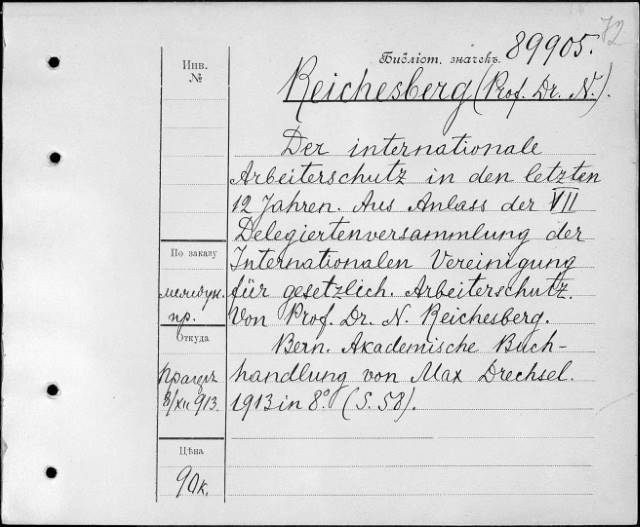 72
Библіот. значекъ 89905.
Инв.
№
Reichesberg (Prof. Dr. N.).
Der internationale
Arbeiterschutz in den letzten
12 Jahren. Aus Anlass der VII
Delegiertenversammlung der
Internationalen Vereinigung
für gesetzlich. Arbeiterschutz.
Von Prof. Dr. N. Reichesberg.
Bern. Akademische Buch-
handlung von Max Drechsel.
1913 in 8° (S. 58).
По заказу
междун.
пр.
Откуда
Прагеръ
8/XII 913.
Цѣна
90к.